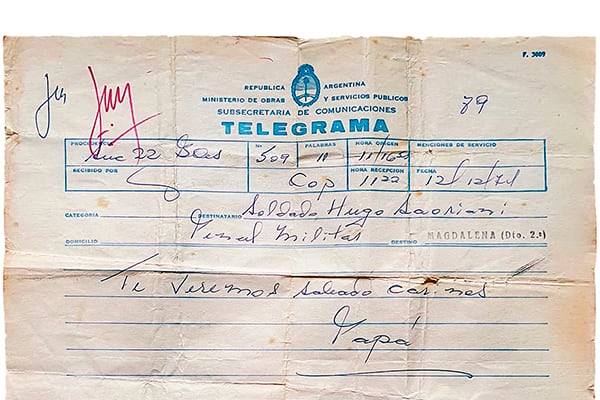 F. 3009
REPUBLICA ARGENTINA
MINISTERIO DE OBRAS Y SERVICIOS PUBLICOS
SUBSECRETARIA DE COMUNICACIONES
79
TELEGRAMA
PROCEDENCIA Nº PALABRAS HORA ORIGEN MENCIONES DE SERVICIO
Suc 22 509 11
RECIBIDO POR HORA RECEPCION FECHA
Cop 1122 12/12/71
CATEGORIA DESTINATARIO Soldado Hugo
DOMICILIO Penal Militar DESTINO MAGDALENA (Dto. 2.º)
Te Veremos sabado cariños
Papá